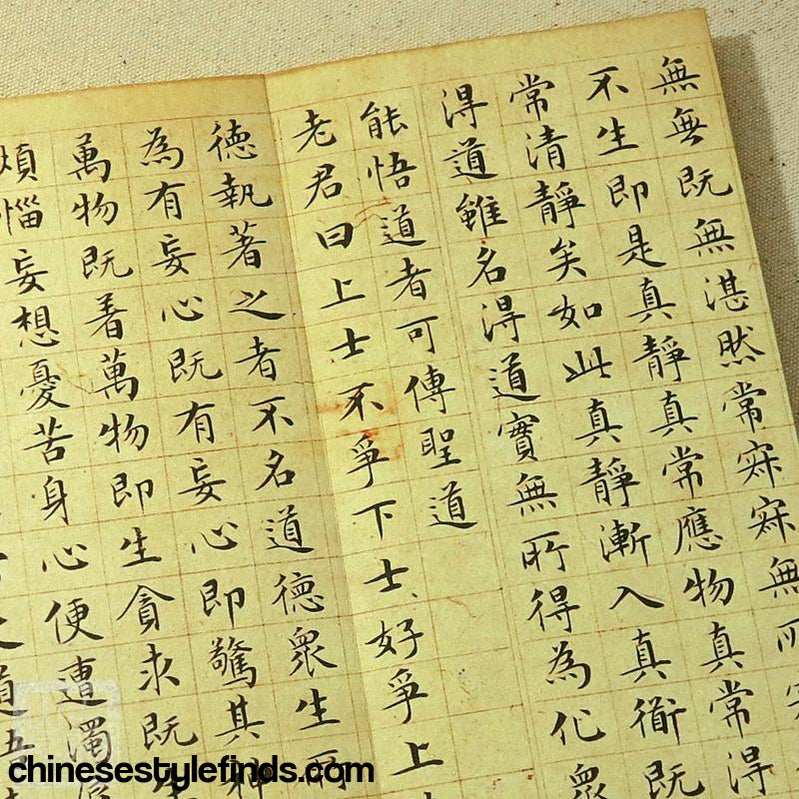 無無既無湛然常寂寂無所
不生即是真靜真常應物真常得
常清靜矣如此真靜漸入真衜既
得道雖名得道實無所得為化衆
能悟道者可傳聖道
老君曰上士不爭下士好爭上
德執著之者不名道德衆生所
為有妄心既有妄心即驚其神
萬物既着萬物即生貪求既
煩惱妄想憂苦身心便遭濁
道
chinesestylefinds.com